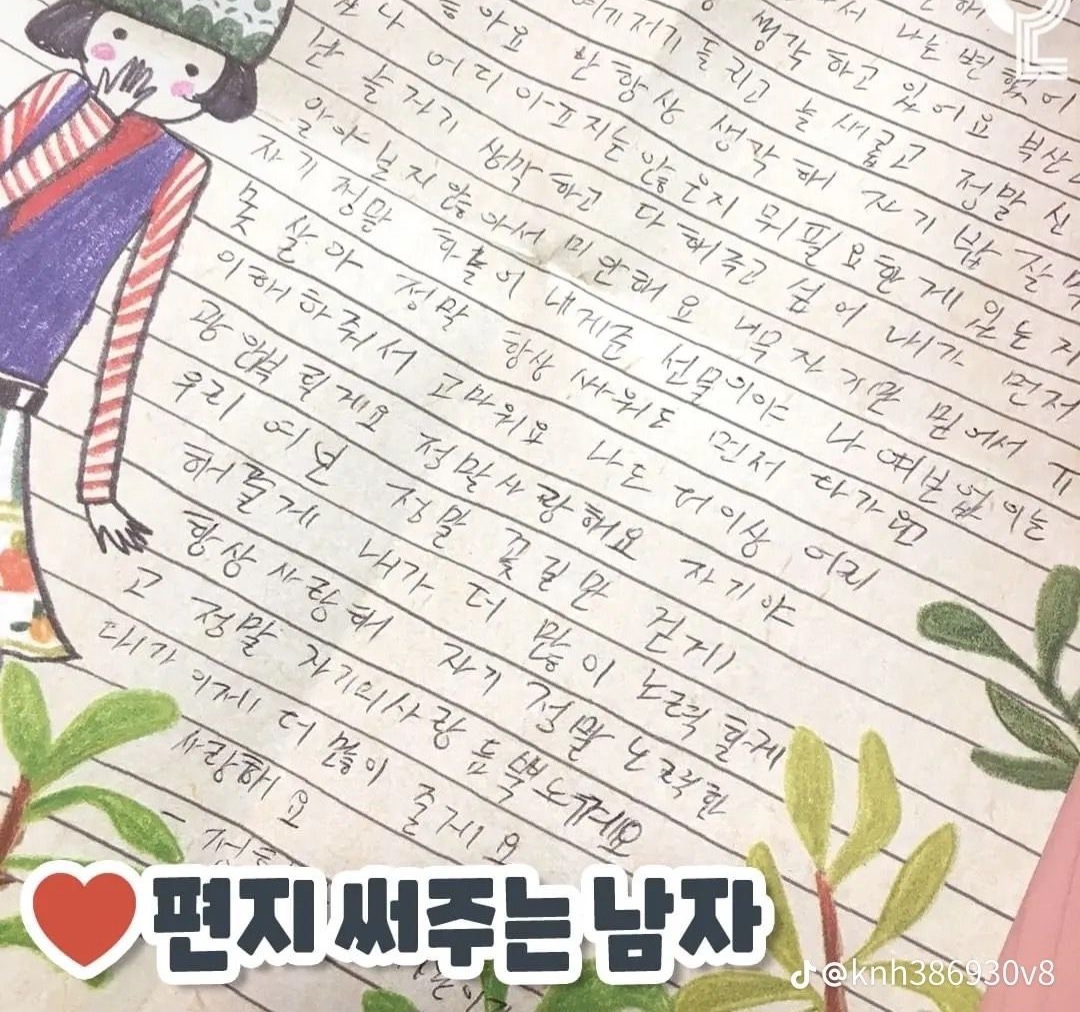 나는 변했어
생각하고 있어요 부산
여기저기 들리고 늘 새롭고 정말 신
아요 난 항상 생각해 자기 밥 잘 먹
어디 아프지는 않은지 뭐 필요한게 있는지
난 늘 자기 생각하고 다 해주고 싶어 내가 먼저
알아보지 않아서 미안해요 너무 자기만 믿어서 ㅠ
자기 정말 하늘이 내게준 선물이야 나 여보없이는
못 살아 정말 항상 싸워도 먼저 다가와
이해해줘서 고마워요 나도 더이상
할게요 정말사랑해요 자기야
우리 여보 정말 꽃길만 걷게
해줄게 내가 더 많이 노력할게
항상 사랑해 자기 정말 노력한
고 정말 자기의사랑 듬뿍느껴요
내가 이제 더 많이 줄게요
사랑해요
편지 써주는 남자
@knh386930v8